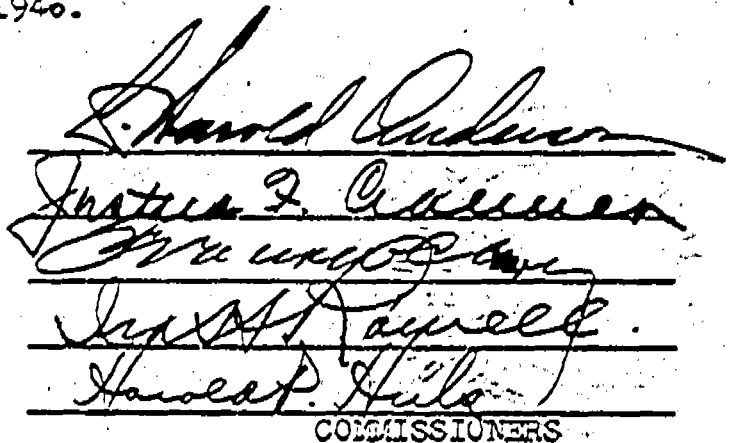 1946.
C. Harold Anderson
Justus F. Craemer
Ira H. Rowell.
Harold P. Huls
COMMISSIONERS